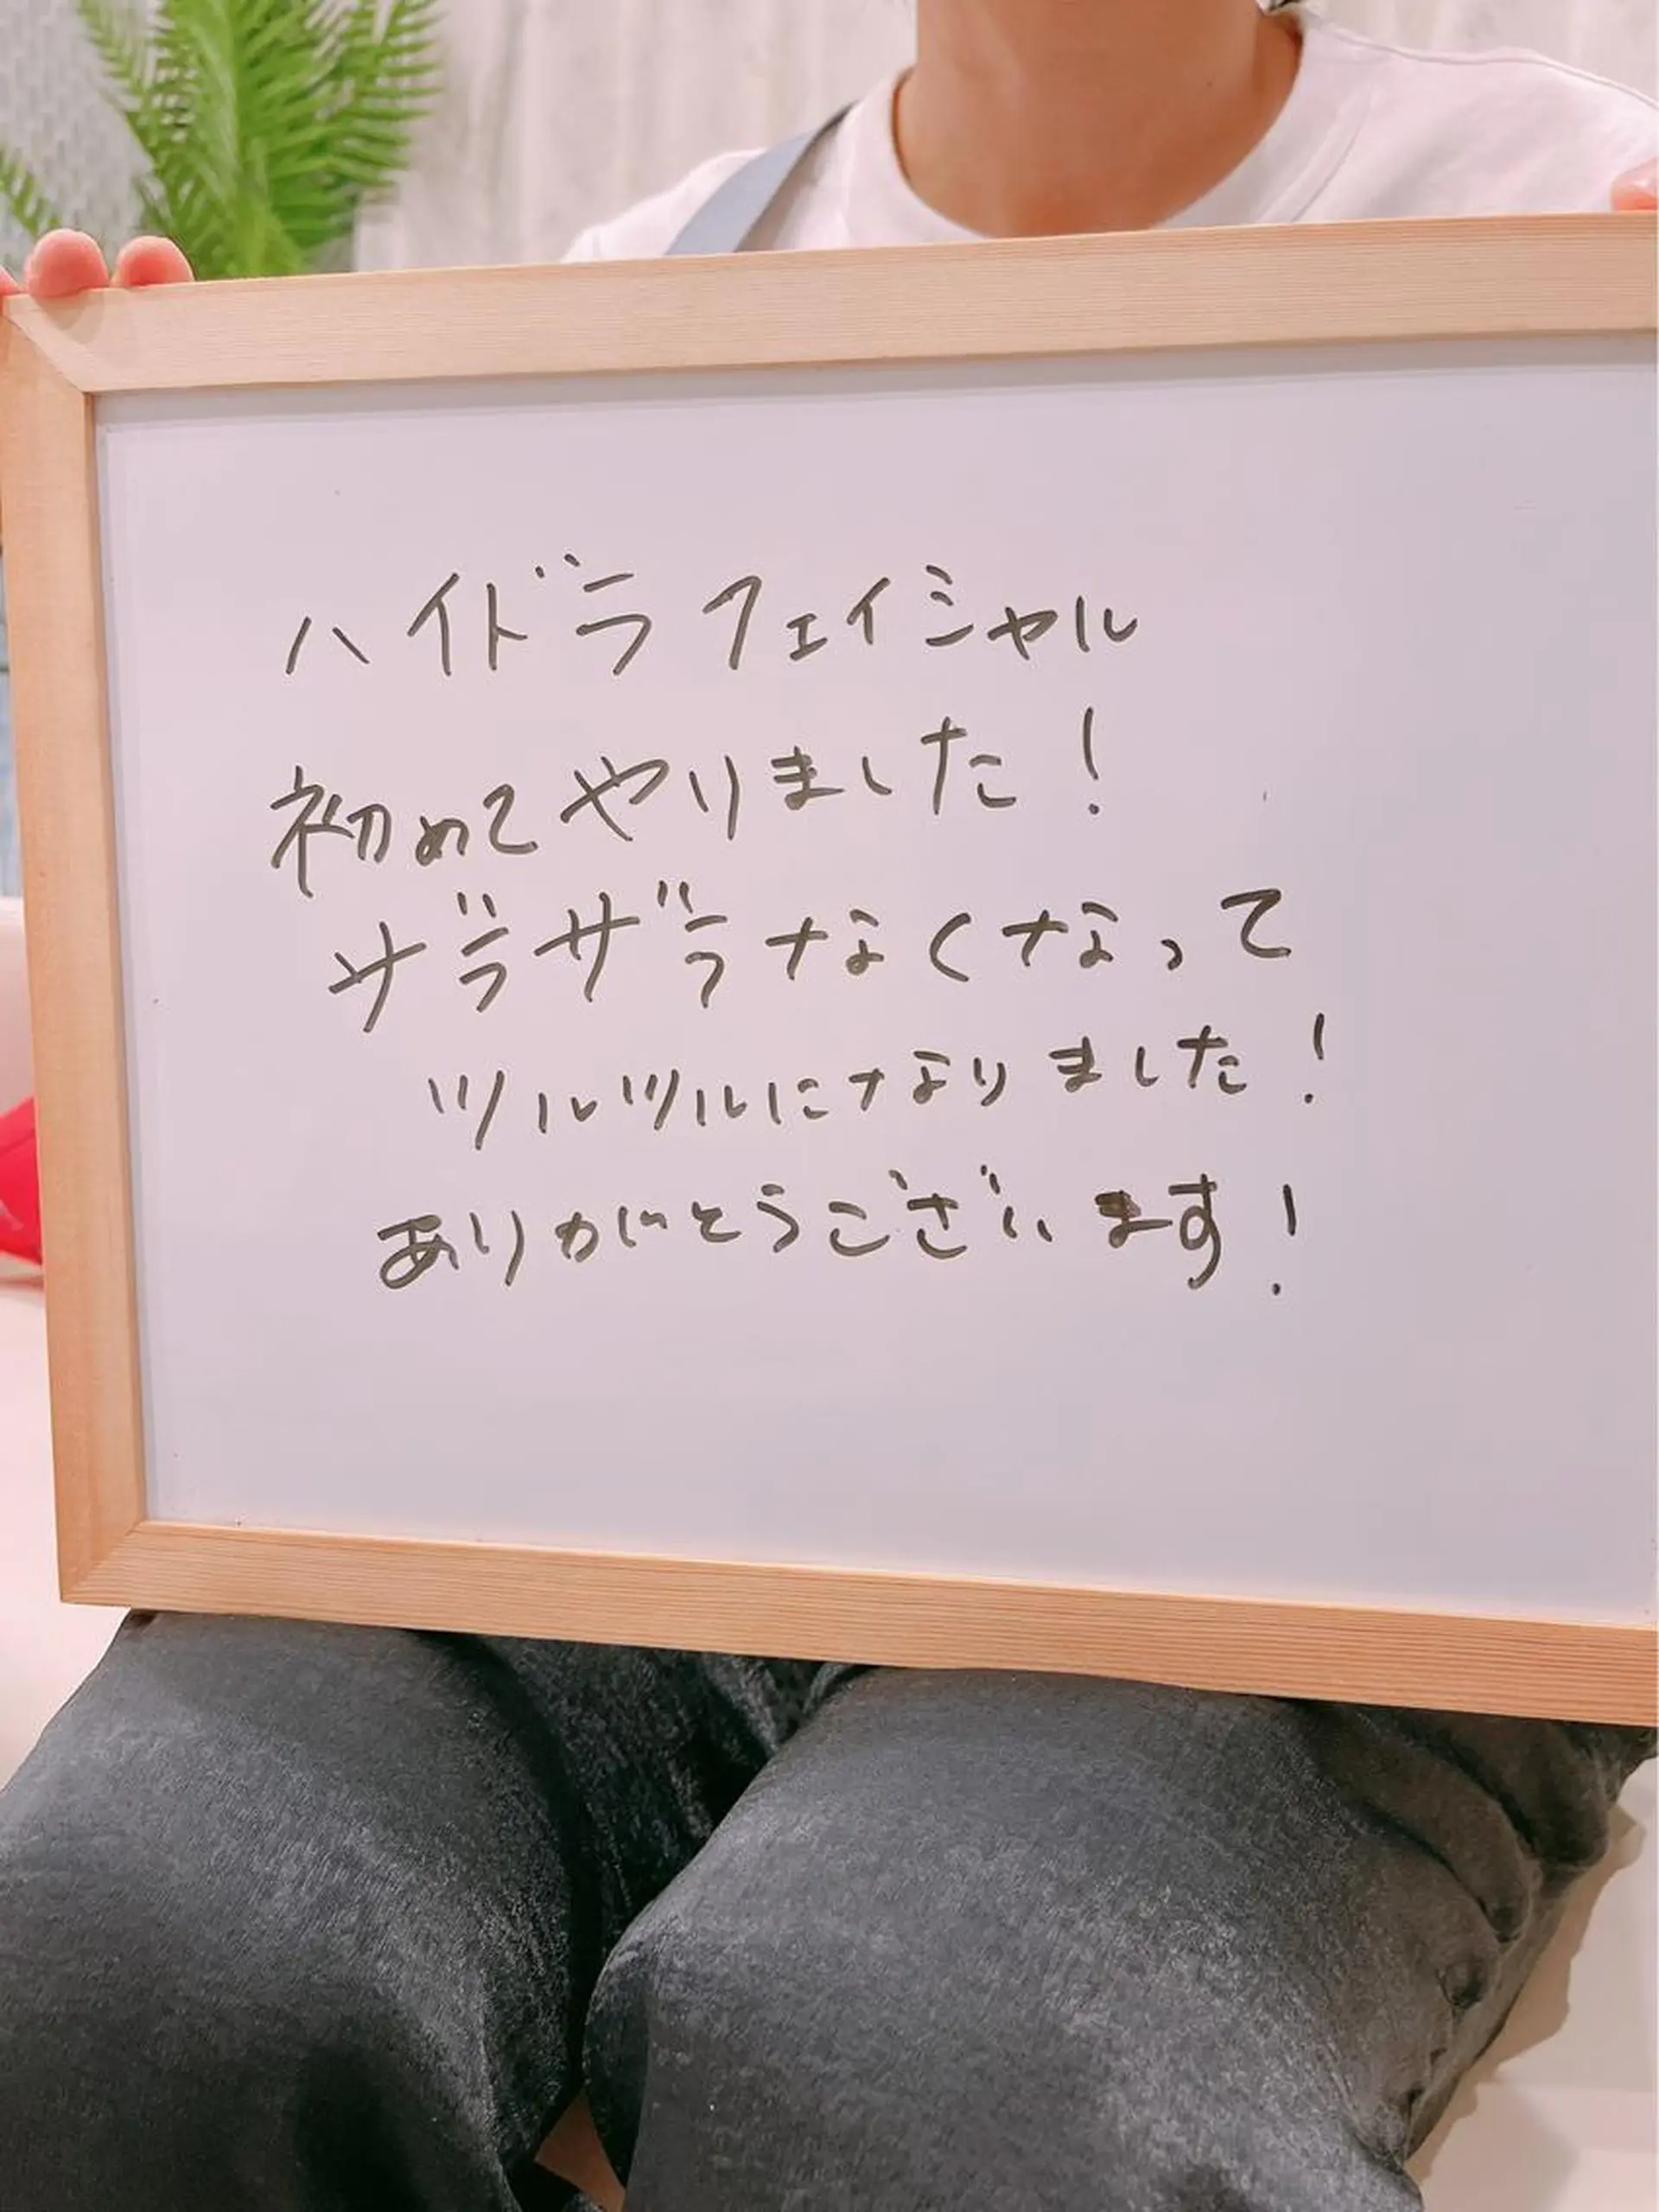 ハイドラフェイシャル
初めてやりました!
ザラザラなくなって
ツルツルになりました!
ありがとうございます!